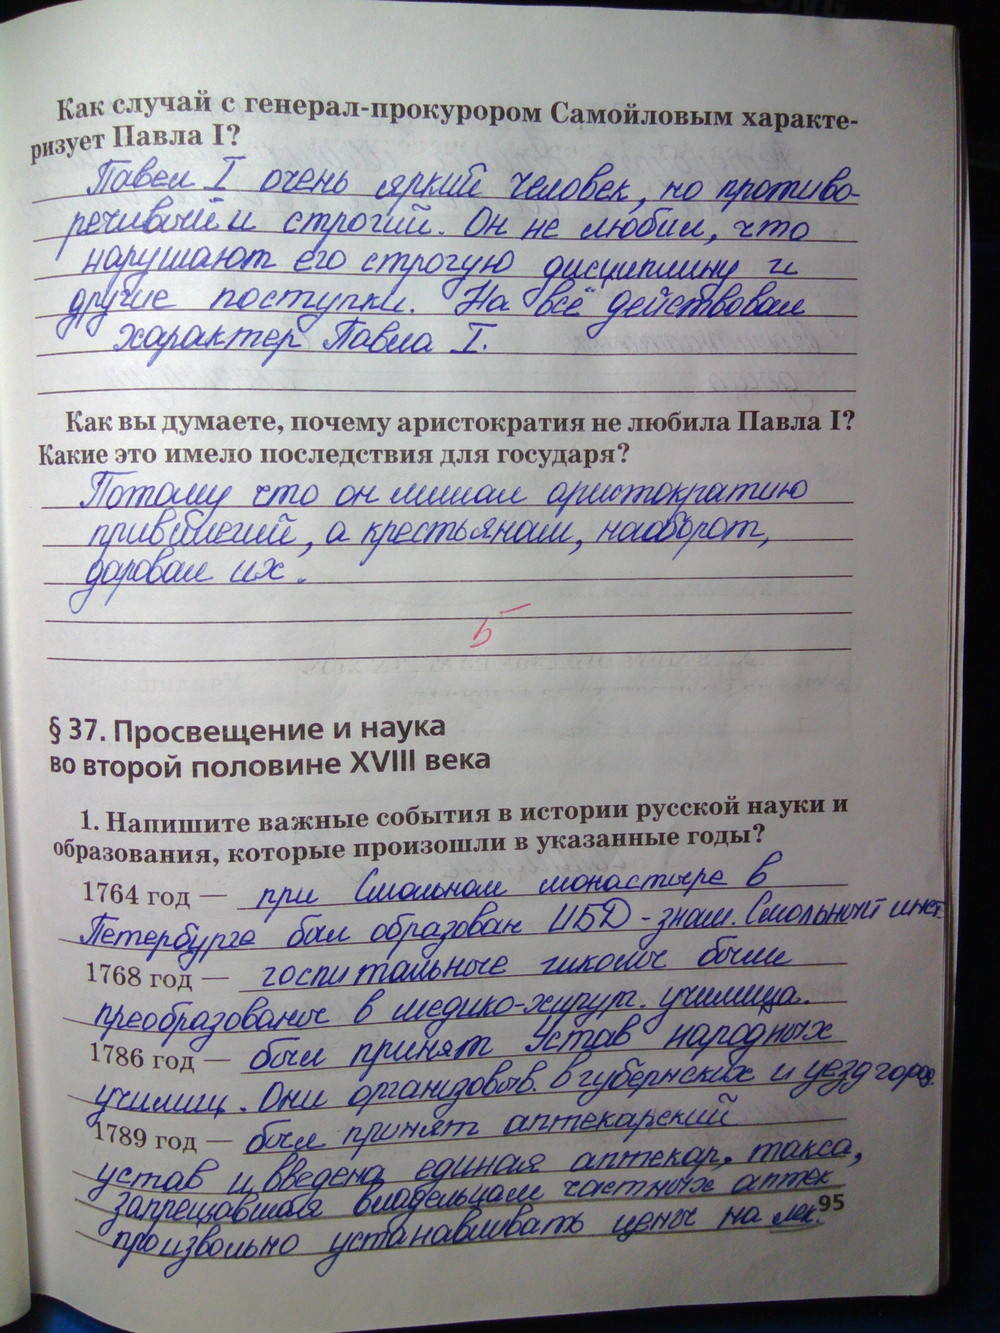 Как случай с генерал-прокурором Самойловым характе-
ризует Павла I?
Павел I очень яркий человек, но противо-
речивый и строгий. Он не любил, что
нарушают его строгую дисциплину и
другие поступки. На всё действовал
характер Павла I.
Как вы думаете, почему аристократия не любила Павла I?
Какие это имело последствия для государя?
Потому что он лишал аристократию
привилегий, а крестьянам, наоборот,
даровал их.
5
§ 37. Просвещение и наука
во второй половине XVIII века
1. Напишите важные события в истории русской науки и
образования, которые произошли в указанные годы?
1764 год — при Смольном монастыре в
Петербурге был образован ИБД - знам. Смольный инст.
1768 год — госпитальные школы были
преобразованы в медико-хирург. училища.
1786 год — был принят Устав народных
училищ. Они организовыв. в губернских и уезд город.
1789 год — был принят аптекарский
устав и введена единая аптекар. такса,
запрещавшая владельцам частных аптек
произвольно устанавливать цены на лек.
95